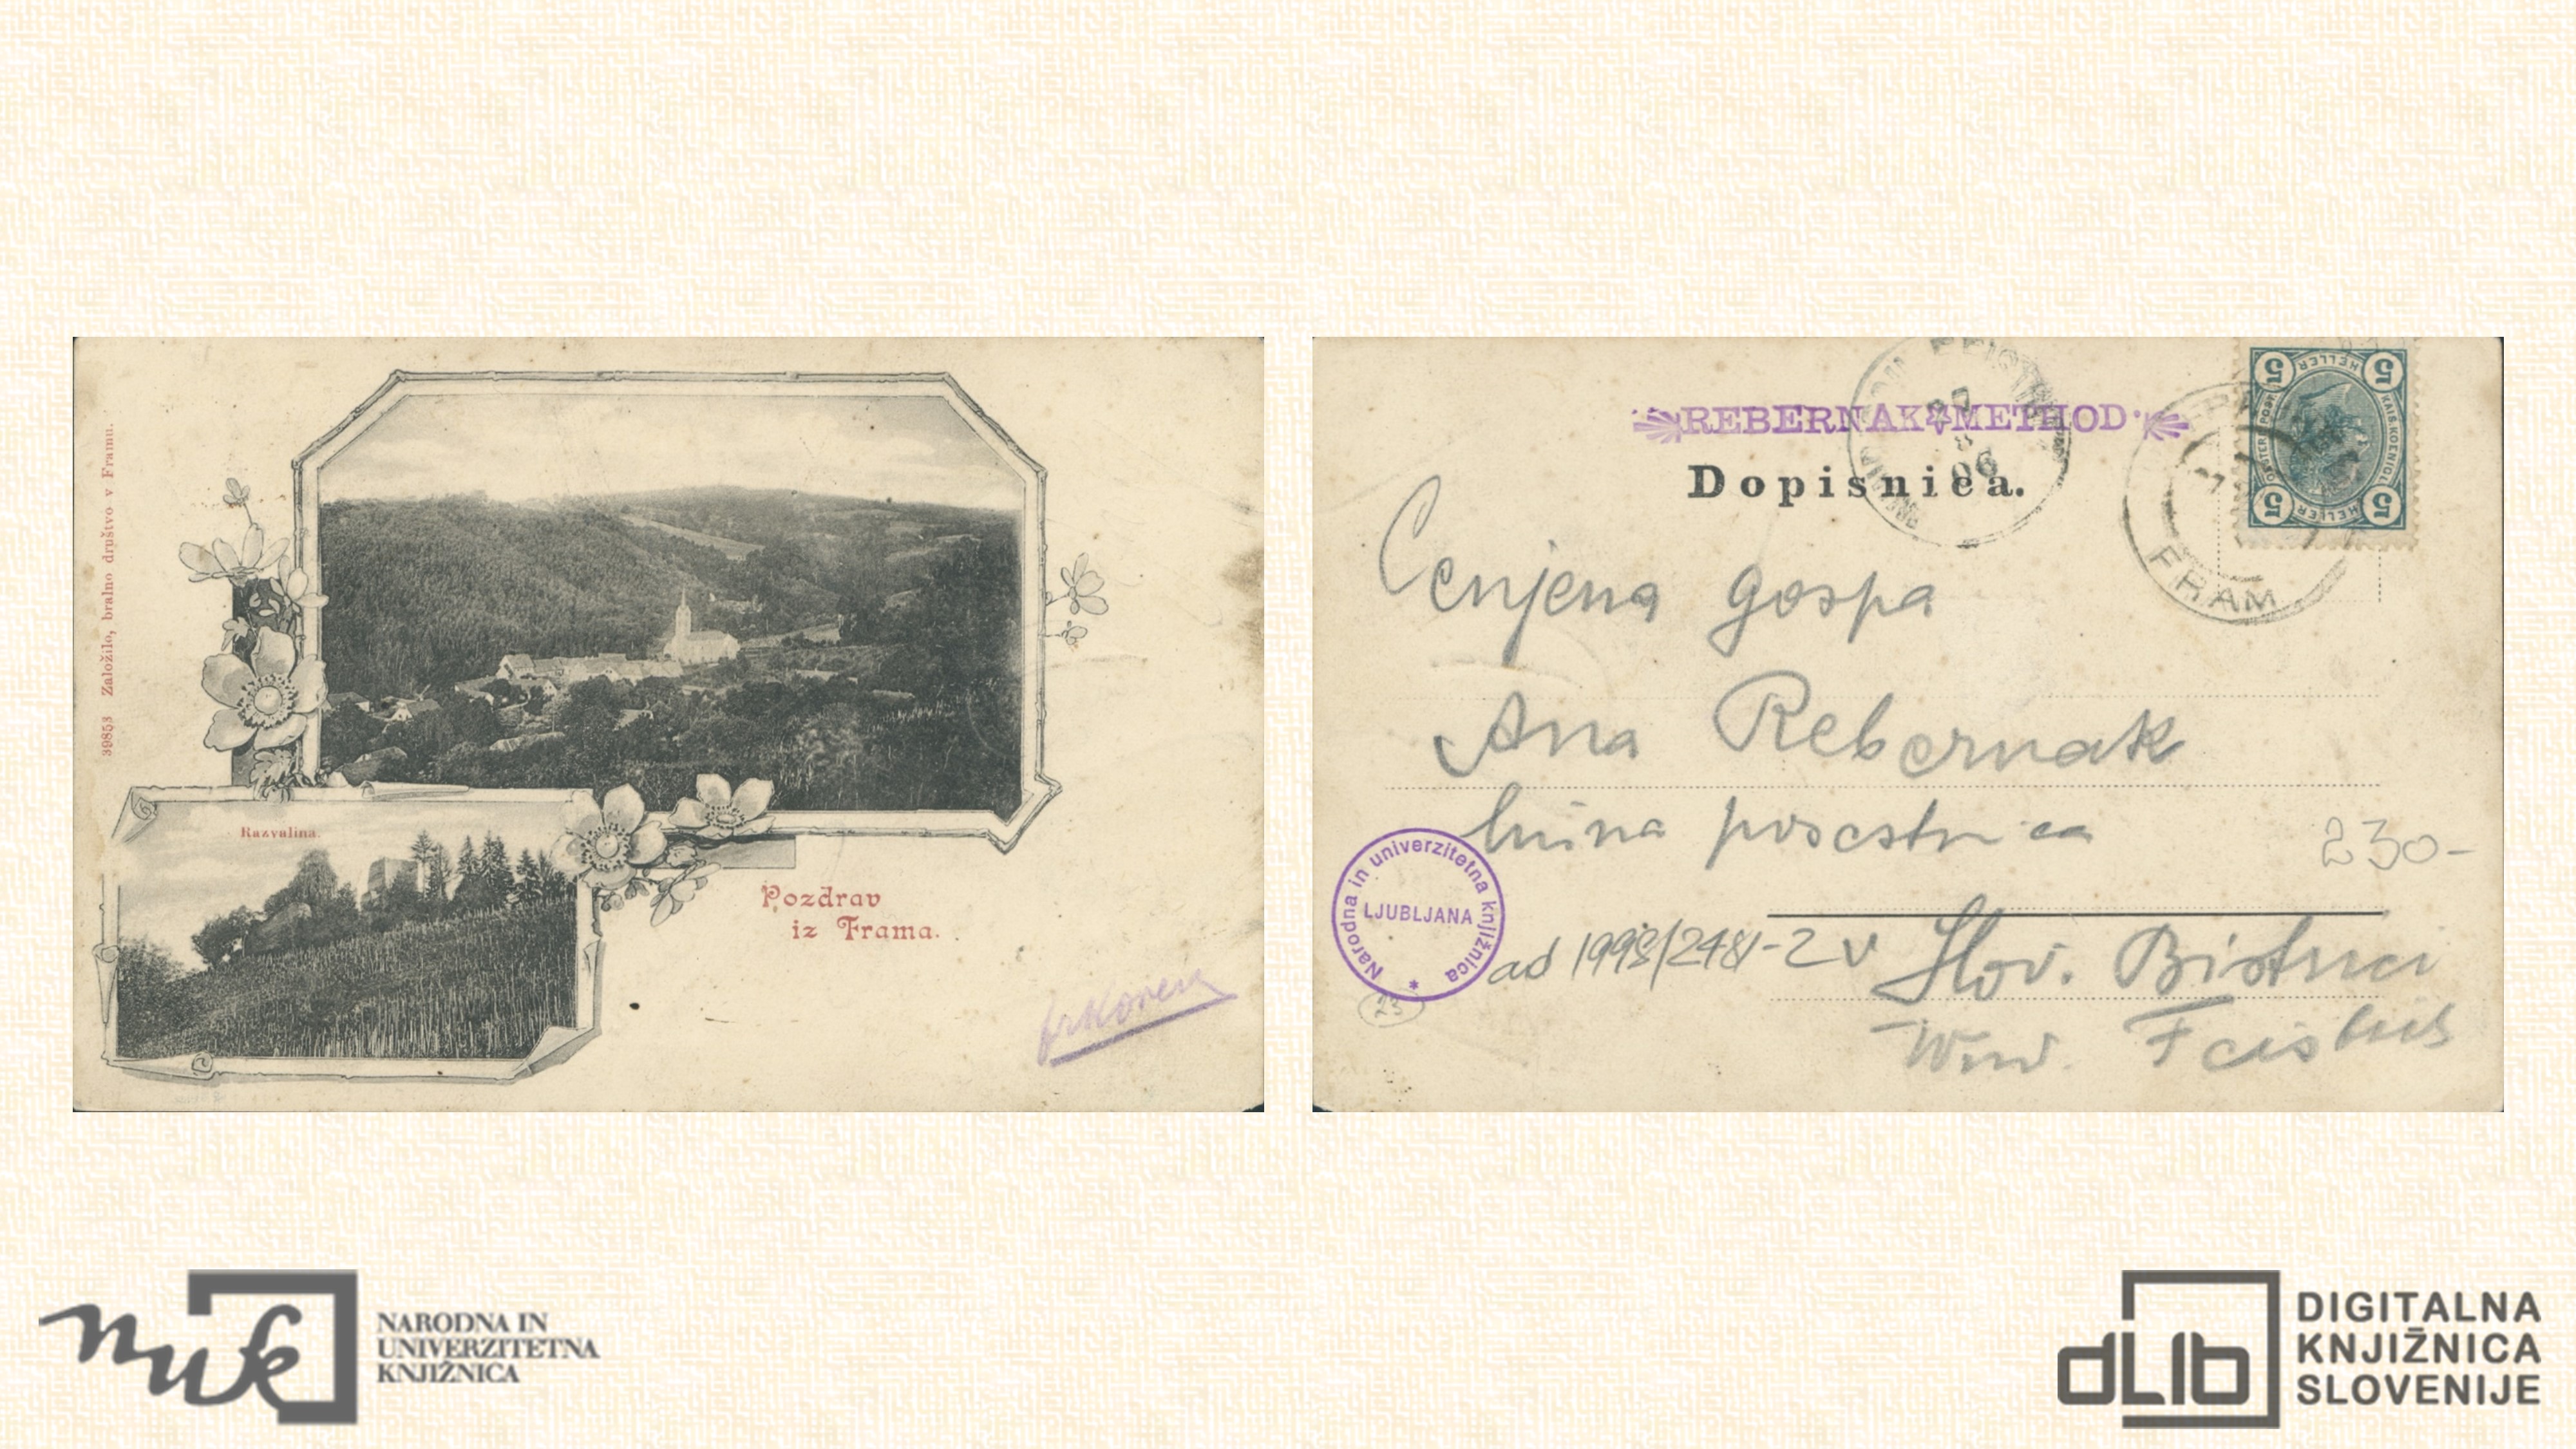 39853 Založilo, bralno društvo v Framu.
Razvalina.
Pozdrav
iz Frama.
REBERNAK METHOD
Dopisnica.
06
5 5
HELLER
KAIS. KOENIGL.
HELLER
5 5
FRAM
Cenjena gospa
Ana Rebernak
hišna posestnica
230-
Narodna in univerzitetna knjižnica
LJUBLJANA
ad 1998/2481-2
v Slov. Bistrici
Win. Feistritz
23
nuk
NARODNA IN
UNIVERZITETNA
KNJIŽNICA
dLib
DIGITALNA
KNJIŽNICA
SLOVENIJE